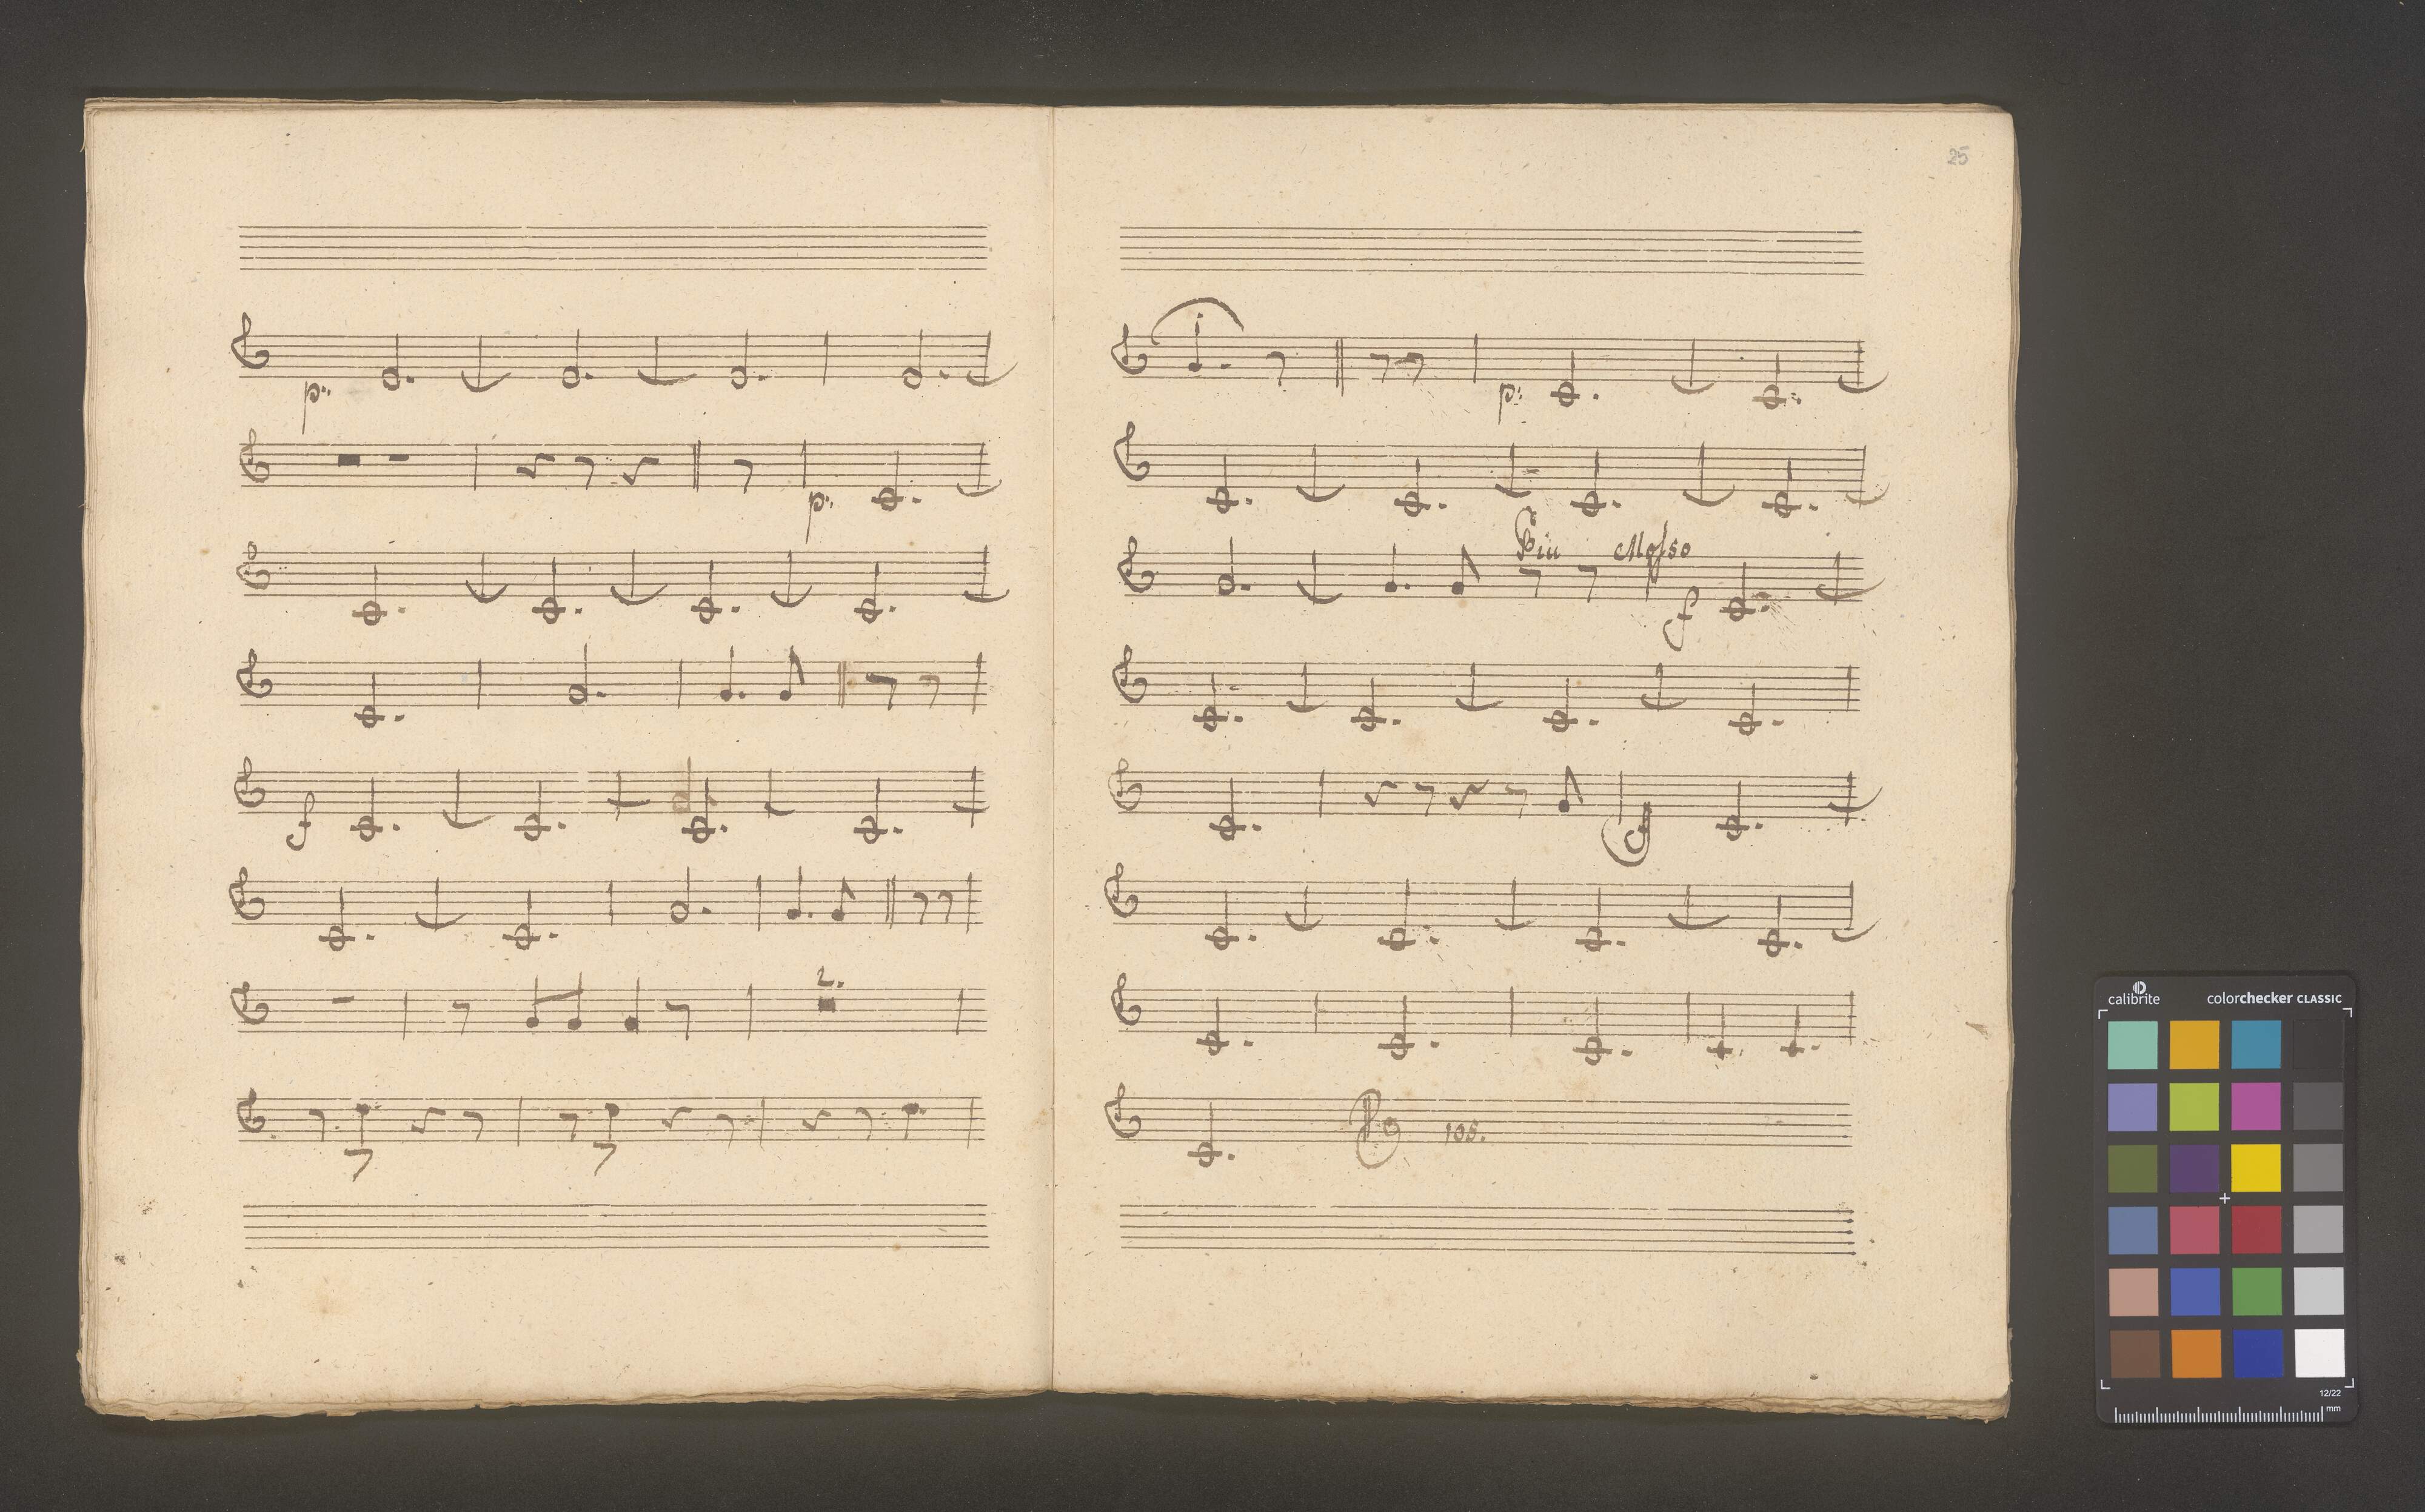 p:
p:
f
2.
25
p:
Piu Mosso
f
105.
calibrite colorchecker CLASSIC
12/22
mm